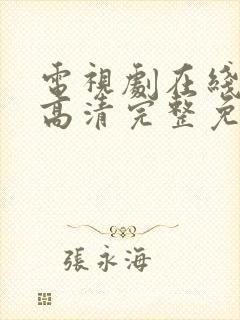 電視劇在綫
高清完整免
張永海